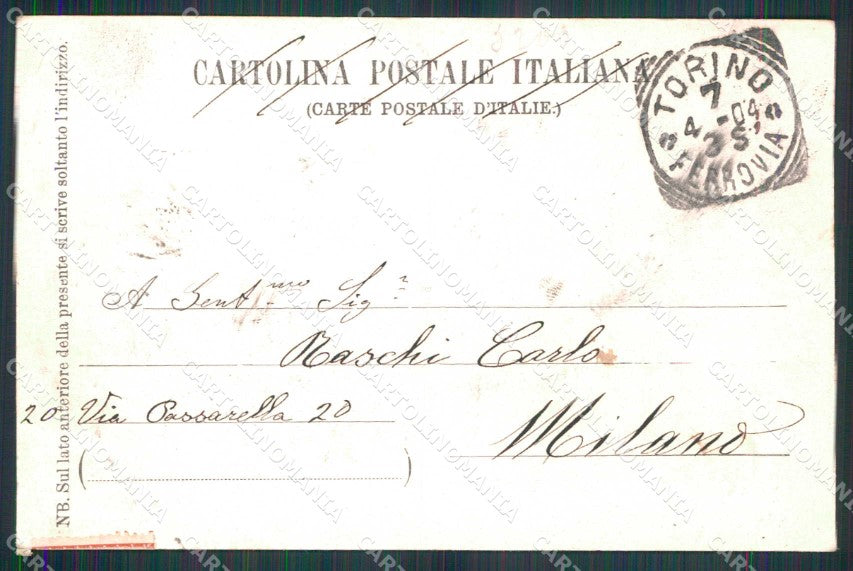 CARTOLINA POSTALE ITALIANA
(CARTE POSTALE D'ITALIE.)
TORINO
7
4 -04
3 S
FERROVIA
NB. Sul lato anteriore della presente si scrive soltanto l'indirizzo.
A Gent.mo Sig.r
Raschi Carlo
20 Via Passarella 20
Milano
CARTOLINOMANIA